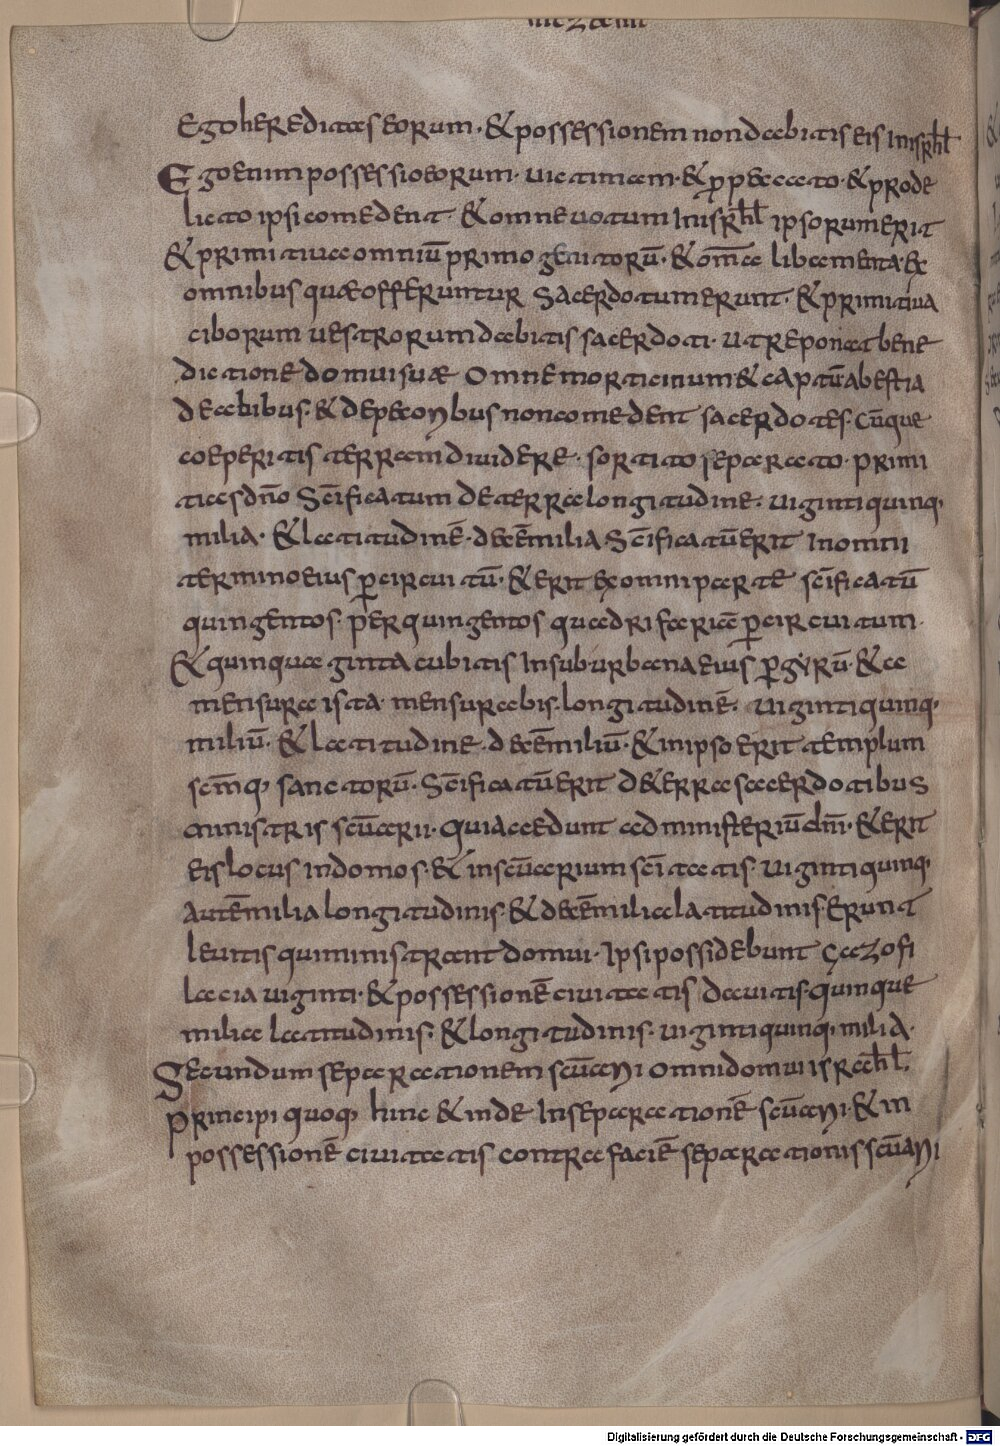 Ego hereditas eorum. & possessionem non dabitis eis in isrhl
Ego enim possessio eorum. victimam. & p̱ peccato. & pro de
licto ipsi comedent. & omne votum in isrhl ipsorum erit
& primitiva omniū primogenitorū. & om̄a libamenta ex
omnibus quæ offeruntur sacerdotum erunt. & primitiva
ciborum vestrorum dabitis sacerdoti. ut reponat bene
dictionē domui suæ Omne morticinum & captū a bestia
de avibus. & de pecoribus non comedent sacerdotes. Cūque
coeperitis terram dividere. sortito separato. primi
tias dn̄o sc̄ificatum de terra longitudine. viginti quinq;
milia. & latitudinē. decē milia sc̄ificatū erit in omni
termino eius ꝑ circuitū. & erit ex omni parte sc̄ificatū
quingentos. per quingentos quadrifariā ꝑ circuitum.
& quinquaginta cubitis in suburbana eius ꝑ gyrū. & a
mensura ista mensurabis. longitudinē. viginti quinq;
miliū. & latitudine. decē miliū. & in ipso erit templum
sc̄mq; sanctorū. Sc̄ificatū erit de terra sacerdotibus
ministris sc̄uarii. Quia accedunt ad ministeriū dn̄i. & erit
eis locus in domos. & in sc̄uarium sc̄itatis. viginti quinq;
autē milia longitudinis. & decē milia latitudinis. erunt
levitis qui ministrant domui. Ipsi possidebunt gazofi
lacia viginti. & possessionē civitatis dabitis. quinque
milia latitudinis. & longitudinis. viginti quinq; milia.
Secundum separationem sc̄uarii omni domui israhl.
Principi quoq; hinc & inde in separationē sc̄uarii. & in
possessionē civitatis contra faciē separationis sc̄uarii
Digitalisierung gefördert durch die Deutsche Forschungsgemeinschaft - DFG